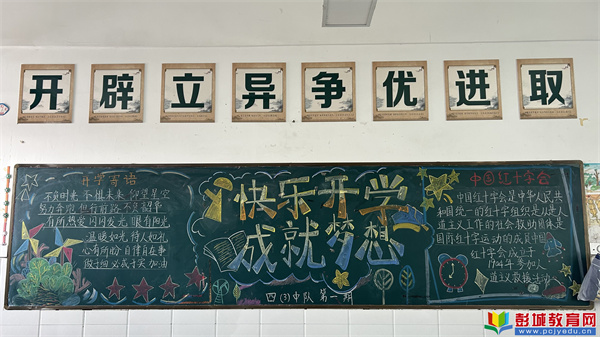 开辟立异争优进取
开学寄语
不负时光 不惧未来 仰望星空
努力奔跑 也有前路 不忘初
有所热爱 闪闪发光 眼有阳光
温暖如光 待人如礼
心有所盼 自律自在事
做 必成于 加油
快乐开学
成就梦想
四(3)中队 第一期
中国红十字会
中国红十字会是中华人民共
和国统一的红十字组织是从事人
道主义工作的社会救助团体是
国际红十字运动的成员中国
红十字会成立于
1904年参加人
道主义救援活动
彭城教育网
www.pcjyedu.cn